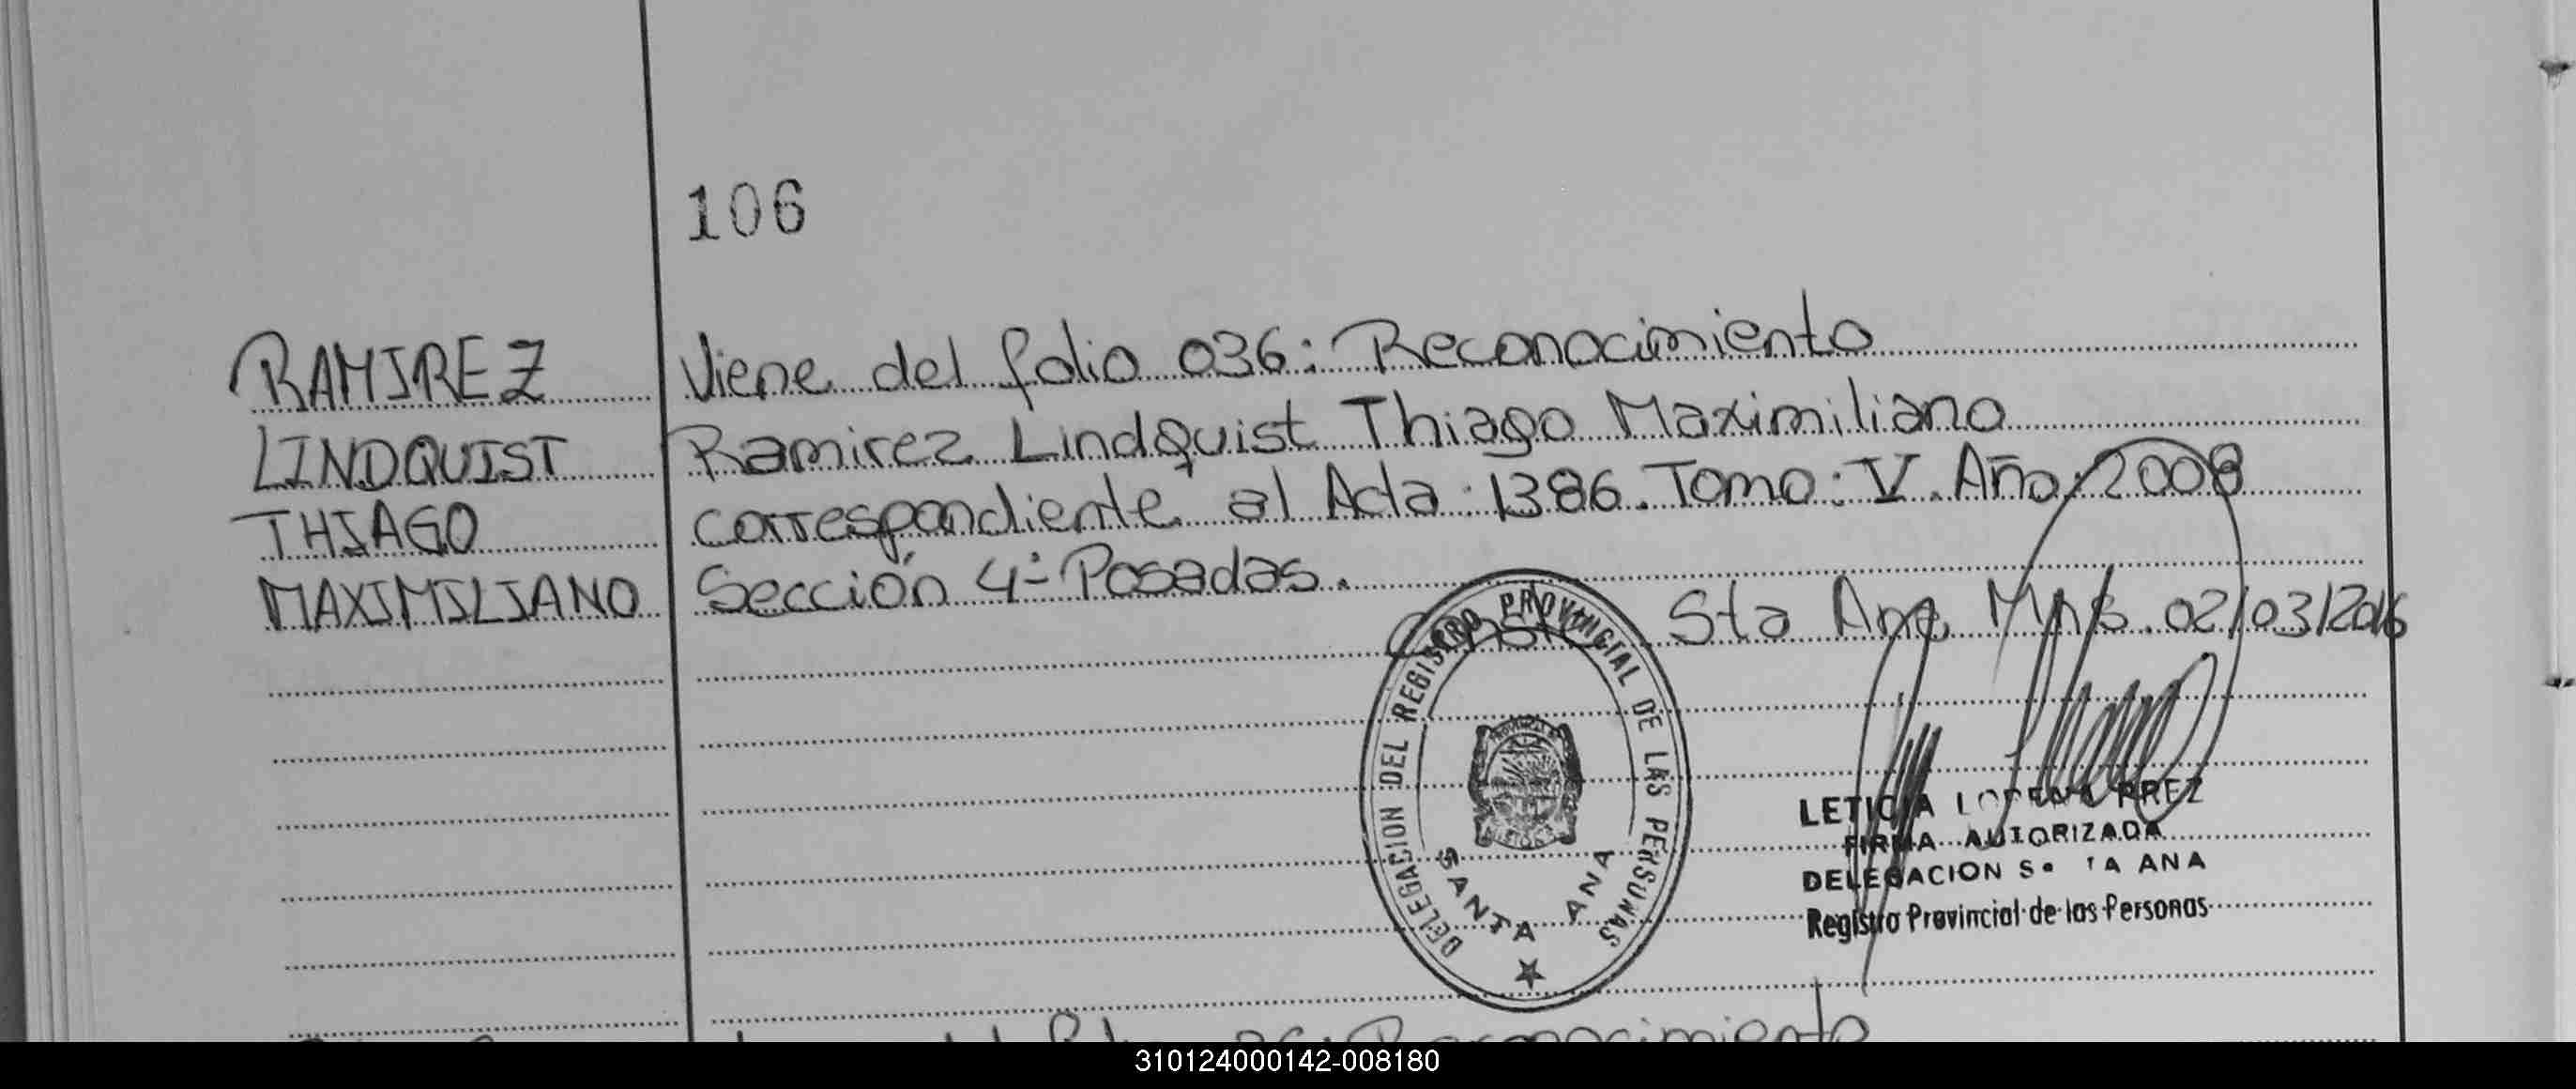 106
RAMIREZ Viene del folio 036: Reconocimiento
LINDQUIST Ramirez Lindquist Thiago Maximiliano
THIAGO correspondiente al Acta: 1386. Tomo: V. Año: 2008
MAXIMILIANO Sección 4ª Posadas.
Conste Sta Ana, Mnes. 02/03/2016
DELEGACION DEL REGISTRO PROVINCIAL DE LAS PERSONAS
SANTA ANA
LETICIA
FIRMA AUTORIZADA
DELEGACION SANTA ANA
Registro Provincial de las Personas
Reconocimiento
310124000142-008180